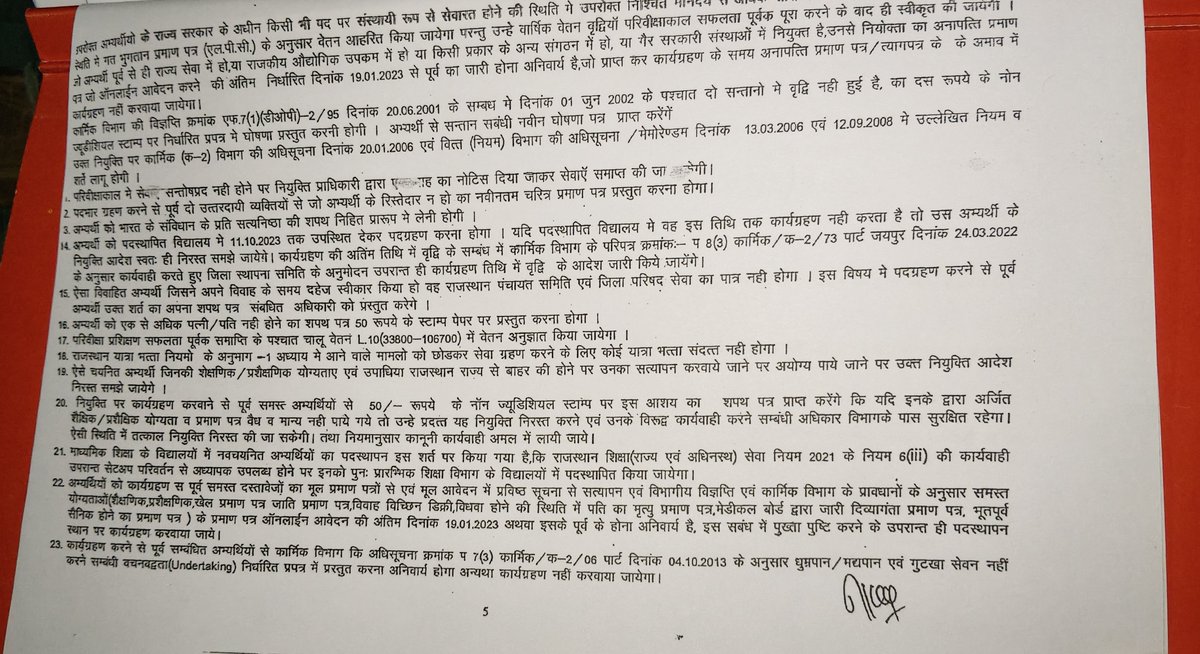 उपरोक्त अभ्यर्थीयो के राज्य सरकार के अधीन किसी भी पद पर संस्थायी रूप से सेवारत होने की स्थिति गे उपरोक्त निश्चित मानदेय से
स्थिति मे गत भुगतान प्रमाण पत्र (एल.पी.सी.) के अनुसार वेतन आहरित किया जायेगा परन्तु उन्हे वार्षिक वेतन वृद्दियॉ परिवीक्षाकाल सफलता पूर्वक पूरा करने के बाद ही स्वीकृत की जायेगी ।
जो अभ्यर्थी पूर्व से ही राज्य सेवा में हो,या राजकीय औद्योगिक उपकम में हो या किसी प्रकार के अन्य संगठन में हो, या गैर सरकारी संस्थाओं में नियुक्त है,उनसे नियोक्ता का अनापत्ति प्रमाण
पत्र जो ऑनलाईन आवेदन करने की अंतिम निर्धारित दिनांक 19.01.2023 से पूर्व का जारी होना अनिवार्य है,जो प्राप्त कर कार्यग्रहण के समय अनापत्ति प्रमाण पत्र/त्यागपत्र के के अभाव में
कार्यग्रहण नहीं करवाया जायेगा।
कार्मिक विभाग की विज्ञप्ति क्रमांक एफ.7(1)(डीओपी)–2/95 दिनांक 20.06.2001 के सम्बध मे दिनांक 01 जुन 2002 के पश्चात दो सन्तानो मे वृद्दि नही हुई है, का दस रूपये के नोन
ज्यूडीशियल स्टाम्प पर निर्धारित प्रपत्र मे घोषणा प्रस्तुत करनी होगी । अभ्यर्थी से सन्तान सबंधी नवीन घोषणा पत्र प्राप्त करेगें
उक्त नियुक्ति पर कार्मिक (क–2) विभाग की अधिसूचना दिनांक 20.01.2006 एवं वित्त (नियम) विभाग की अधिसूचना /मेमोरेण्डम दिनांक 13.03.2006 एवं 12.09.2008 मे उल्लेखित नियम व
शर्ते लागू होगी ।
1. परिवीक्षाकाल मे सन्तोषप्रद नही होने पर नियुक्ति प्राधिकारी द्वारा का नोटिस दिया जाकर सेवाऍ समाप्त की जा
2. पदभार ग्रहण करने से पूर्व दो उत्तरदायी व्यक्तियों से जो अभ्यर्थी के रिस्तेदार न हो का नवीनतम चरित्र प्रमाण पत्र प्रस्तुत करना होगा।
3. अभ्यर्थी को भारत के संविधान के प्रति सत्यनिष्ठा की शपथ निहित प्रारूप मे लेनी होगी ।
14. अभ्यर्थी को पदस्थापित विद्यालय मे 11.10.2023 तक उपस्थित देकर पदग्रहण करना होगा । यदि पदस्थापित विद्यालय मे वह इस तिथि तक कार्यग्रहण नही करता है तो उस अभ्यर्थी के
नियुक्ति आदेश स्वतः ही निरस्त समझे जायेगे। कार्यग्रहण की अतिंम तिथि में वृद्दि के सम्बंध में कार्मिक विभाग के परिपत्र क्रमांकः– प 8(3) कार्मिक/क–2/73 पार्ट जयपुर दिनांक 24.03.2022
के अनुसार कार्यवाही करते हुए जिला स्थापना समिति के अनुमोदन उपरान्त ही कार्यग्रहण तिथि में वृद्दि के आदेश जारी किये जायेंगे।
15. ऐसा विवाहित अभ्यर्थी जिसने अपने विवाह के समय दहेज स्वीकार किया हो वह राजस्थान पंचायत समिति एवं जिला परिषद सेवा का पात्र नही होगा । इस विषय मे पदग्रहण करने से पूर्व
अभ्यर्थी उक्त शर्त का अपना शपथ पत्र संबधित अधिकारी को प्रस्तुत करेगे ।
16. अभ्यर्थी को एक से अधिक पत्नी/पति नही होने का शपथ पत्र 50 रूपये के स्टाम्प पेपर पर प्रस्तुत करना होगा ।
17. परिवीक्षा प्रशिक्षण सफलता पूर्वक समाप्ति के पश्चात चालू वेतन L.10(33800–106700) में वेतन अनुज्ञात किया जायेगा ।
18. राजस्थान यात्रा भत्ता नियमो के अनुभाग –1 अध्याय मे आने वाले मामलो को छोडकर सेवा ग्रहण करने के लिए कोई यात्रा भत्ता संदत्त नही होगा ।
19. ऐसे चयनित अभ्यर्थी जिनकी शैक्षणिक/प्रशैक्षणिक योग्यताए एवं उपाधिया राजस्थान राज्य से बाहर की होने पर उनका सत्यापन करवाये जाने पर अयोग्य पाये जाने पर उक्त नियुक्ति आदेश
निरस्त समझे जायेगे ।
20. नियुक्ति पर कार्यग्रहण करवाने से पूर्व समस्त अभ्यर्थियों से 50/– रूपये के नॉन ज्यूडिशियल स्टाम्प पर इस आशय का शपथ पत्र प्राप्त करेंगे कि यदि इनके द्वारा अर्जित
शैक्षिक/प्रशैक्षिक योग्यता व प्रमाण पत्र वैध व मान्य नही पाये गये तो उन्हे प्रदत्त यह नियुक्ति निरस्त करने एवं उनके विरूद्व कार्यवाही करने सम्बंधी अधिकार विभागके पास सुरक्षित रहेगा।
ऐसी स्थिति में तत्काल नियुक्ति निरस्त की जा सकेगी। तथा नियमानुसार कानूनी कार्यवाही अमल में लायी जाये।
21. माध्यमिक शिक्षा के विद्यालयों में नवचयनित अभ्यर्थियों का पदस्थापन इस शर्त पर किया गया है,कि राजस्थान शिक्षा(राज्य एवं अधिनस्थ) सेवा नियम 2021 के नियम 6(iii) की कार्यवाही
उपरान्त सेटअप परिवर्तन से अध्यापक उपलब्ध होने पर इनको पुनः प्रारम्भिक शिक्षा विभाग के विद्यालयों में पदस्थापित किया जायेगा।
22. अभ्यर्थियों को कार्यग्रहण स पूर्व समस्त दस्तावेजों का मूल प्रमाण पत्रों से एवं मूल आवेदन में प्रविष्ठ सूचना से सत्यापन एवं विभागीय विज्ञप्ति एवं कार्मिक विभाग के प्रावधानों के अनुसार समस्त
योग्यताओं(शैक्षणिक,प्रशैक्षणिक,खेल प्रमाण पत्र जाति प्रमाण पत्र,विवाह विच्छिन डिक्री,विधवा होने की स्थिति में पति का मृत्यु प्रमाण पत्र,मेडीकल बोर्ड द्वारा जारी दिव्यागंता प्रमाण पत्र, भूतपूर्व
सैनिक होने का प्रमाण पत्र ) के प्रमाण पत्र ऑनलाईन आवेदन की अंतिम दिनांक 19.01.2023 अथवा इसके पूर्व के होना अनिवार्य है, इस सबंध में पुख्ता पुष्टि करने के उपरान्त ही पदस्थापन
स्थान पर कार्यग्रहण करवाया जाये।
23. कार्यग्रहण करने से पूर्व सम्बंधित अभ्यर्थियों से कार्मिक विभाग कि अधिसूचना क्रमांक प 7(3) कार्मिक/क–2/06 पार्ट दिनांक 04.10.2013 के अनुसार धुम्रपान/मद्यपान एवं गुटखा सेवन नहीं
करने सम्बंधी वचनवद्वता(Undertaking) निर्धारित प्रपत्र में प्रस्तुत करना अनिवार्य होगा अन्यथा कार्यग्रहण नहीं करवाया जायेगा।
5